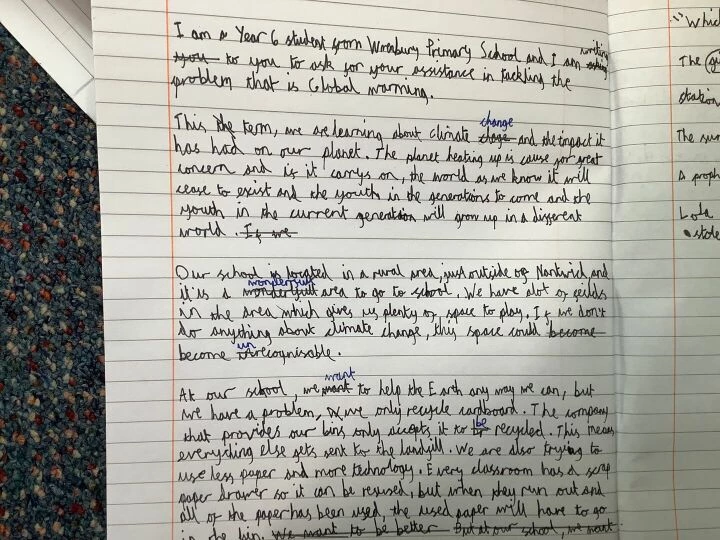 I am a Year 6 student from Wrenbury Primary School and I am writing
you to you to ask for your assistance in tackling the
problem that is Global warming.
This the term, we are learning about climate change and the impact it
has had on our planet. The planet heating up is cause for great
concern and is it carrys on, the world as we know it will
cease to exist and the youth in the generations to come and the
youth in the current generation will grow up in a different
world. If we
Our school is located in a rural area, just outside of Nantwich and
it is a wonderfull area to go to school. We have alot of feilds
in the area which gives us plenty of space to play. If we don't
do anything about climate change, this space could become
become unrecognisable.
At our school, we want to help the Earth any way we can, but
we have a problem, we only recycle cardboard. The company
that provides our bins only accepts it to be recycled. This means
everything else gets sent to the landfill. We are also trying to
use less paper and more technology. Every classroom has a scrap
paper drawer so it can be reused, but when they run out and
all of the paper has been used, the used paper will have to go
in the bin. We want to be better But at our school, we want
Which
The
station
The sun
A proph
Lola
• stole